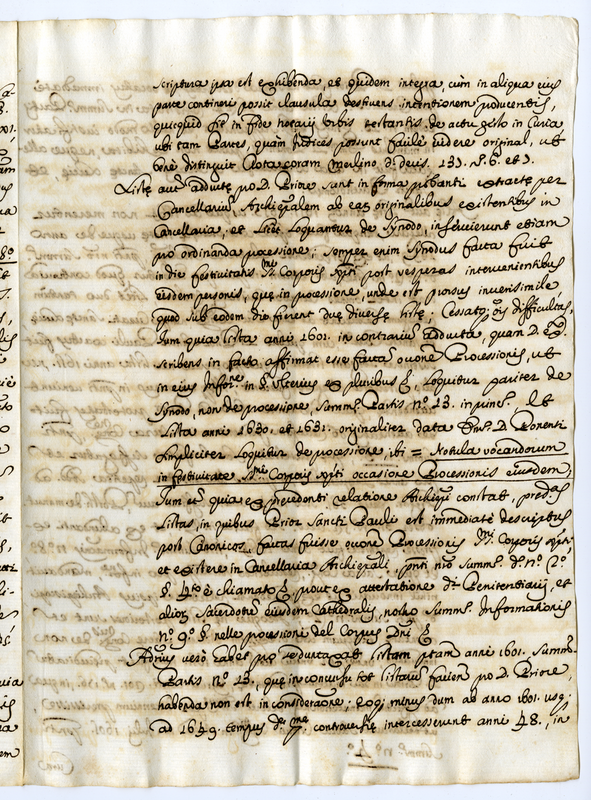 scriptura ipsa est exhibenda, et quidem integra, cùm in aliqua eius
parte contineri possit clausula destruens intentionem producentis,
quicquid sit in fide notarij Urbis testantis de actu gesto in Curia
ubi tam Partes, quàm Judices possunt facilè videre original, ut
benè distinguit Rota coram Merlino d. decis. 131. n. 6. et 7.
Listę aut. adductę pro D. Priore sunt in forma probanti extractę per
Cancellariũ Archiepalem ab eaꝫ originalibus existentibus in
Cancellaria, et licet loquantur de Synodo, inseruierunt etiam
pro ordinanda processione; semper enim Synodus facta fuit
in die festiuitatis SS.mi Corporis xpti post vesperas interuenientibus
eisdem personis, quę in processione, unde est prorsus inuerisimile
quod sub eodem die fierent duę diuersę listę; Cessatq; ois difficultas,
Tum quia lista anni 1601. in contrariũ adducta, quam D.
scribens in facto affirmat esse factam occone Processionis, ut
in eius Infor.ne in §. Ulterius ex pluribus §, loquitur pariter de
Synodo, non de processione, Summ. Partis n.o 23. in princ. Et
Lista anni 1630. et 1631. originaliter data D. Ponenti
simpliciter loquitur de processione, ibi = Notula vocandorum
in festiuitate SS.mi Corporis xpti occasione Processionis eiusdem,
Tum et quia ex precedenti relatione Archiep. constat, pred.as
Listas, in quibus Prior Sancti Pauli est immediatè descriptus
post Canonicos factas fuisse occone Processionis SS.mi Corporis xpti
et existere in Cancellaria Archiepali, pnti nro Summ. d.o n.o 2.o
§. 4to è chiamato §, prout ex attestatione d. Penitentiarij, et
alioꝝ Sacerdotũ eiusdem Cathedralis, nostro Summ. Informationis
n.o 9.o §. nelle processioni del Corpus Dni §
Aduersus verò habet pro se dumtaxat listam ptam anni 1601. Summ.
Partis n.o 23., quę in concursu tot listarũ fauien. pro D. Priore,
habenda non est in consideraone; eoq; minus dum ab anno 1601. usq;
ad 1649. tempus d. controuersię intercesserunt anni 48., in
Summ. n.o 4.o